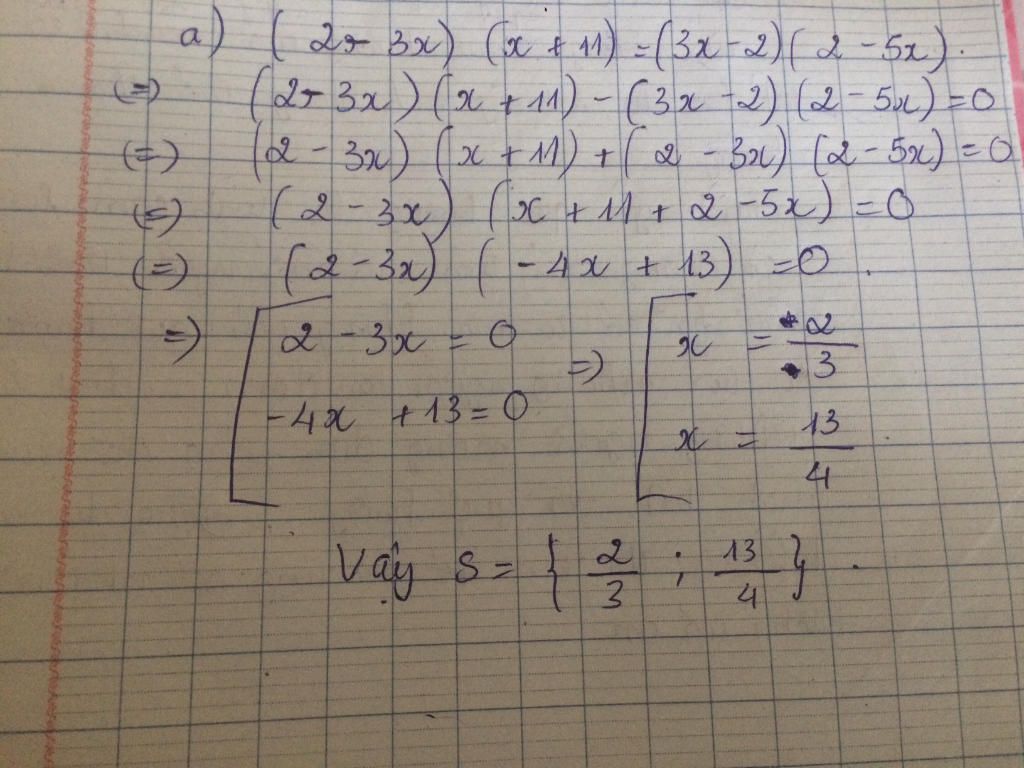 a) (2 - 3x) (x + 11) = (3x - 2) (2 - 5x).
(=) (2 - 3x) (x + 11) - (3x - 2) (2 - 5x) = 0
(=) (2 - 3x) (x + 11) + (2 - 3x) (2 - 5x) = 0
(=) (2 - 3x) (x + 11 + 2 - 5x) = 0
(=) (2 - 3x) (-4x + 13) = 0.
=) [ 2 - 3x = 0 =) [ x = 2/3
-4x + 13 = 0 x = 13/4
Vậy S = { 2/3 ; 13/4 }.